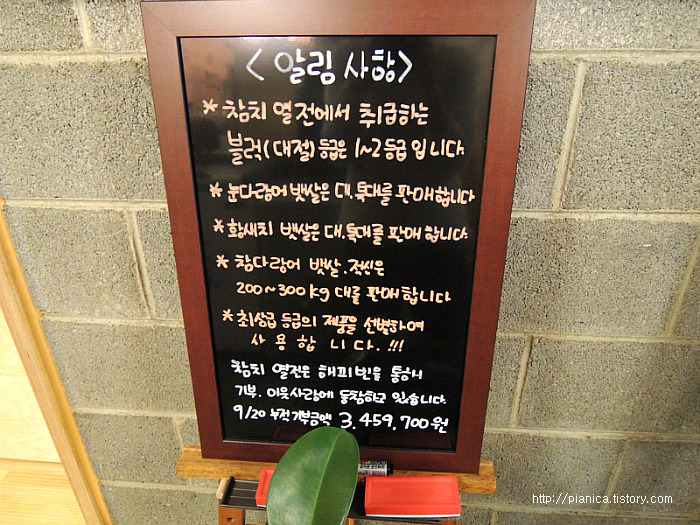 <알림 사항>
* 참치 열전에서 취급하는
블럭(대절)등급은 1~2등급 입니다.
* 눈다랑어 뱃살은 대.특대를 판매합니다
* 황새치 뱃살은 대.특대를 판매합니다.
* 참다랑어 뱃살.적신은
200~300kg 대를 판매합니다
* 최상급 등급의 제품을 선별하여
사용합니다.!!!
참치 열전은 해피빈을 통해서
기부.이웃사랑에 동참하고 있습니다.
9/20 누적기부금액 3.459.700원
http://pianica.tistory.com